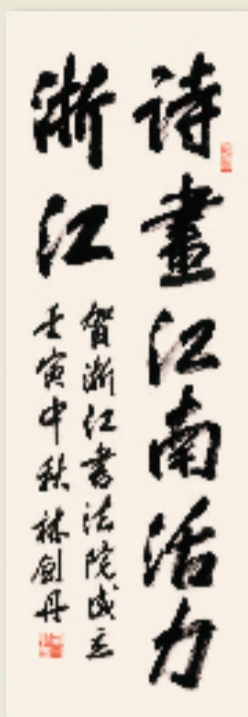 诗畫江南活力
浙江
贺浙江書法院成立
壬寅中秋林剑丹